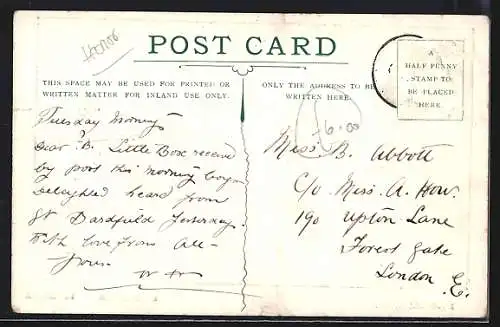 POST CARD
THIS SPACE MAY BE USED FOR PRINTED OR
WRITTEN MATTER FOR INLAND USE ONLY.
ONLY THE ADDRESS TO BE
WRITTEN HERE.
A
HALF PENNY
STAMP TO
BE PLACED
HERE
6.00
Tuesday morning
Dear B. Little Box received
by post this morning
delighted heard from
Gt Bardfield yesterday.
With love from all
Miss. B. Abbott
C/o Miss. A. How.
190 Upton Lane
Forest Gate
London E.